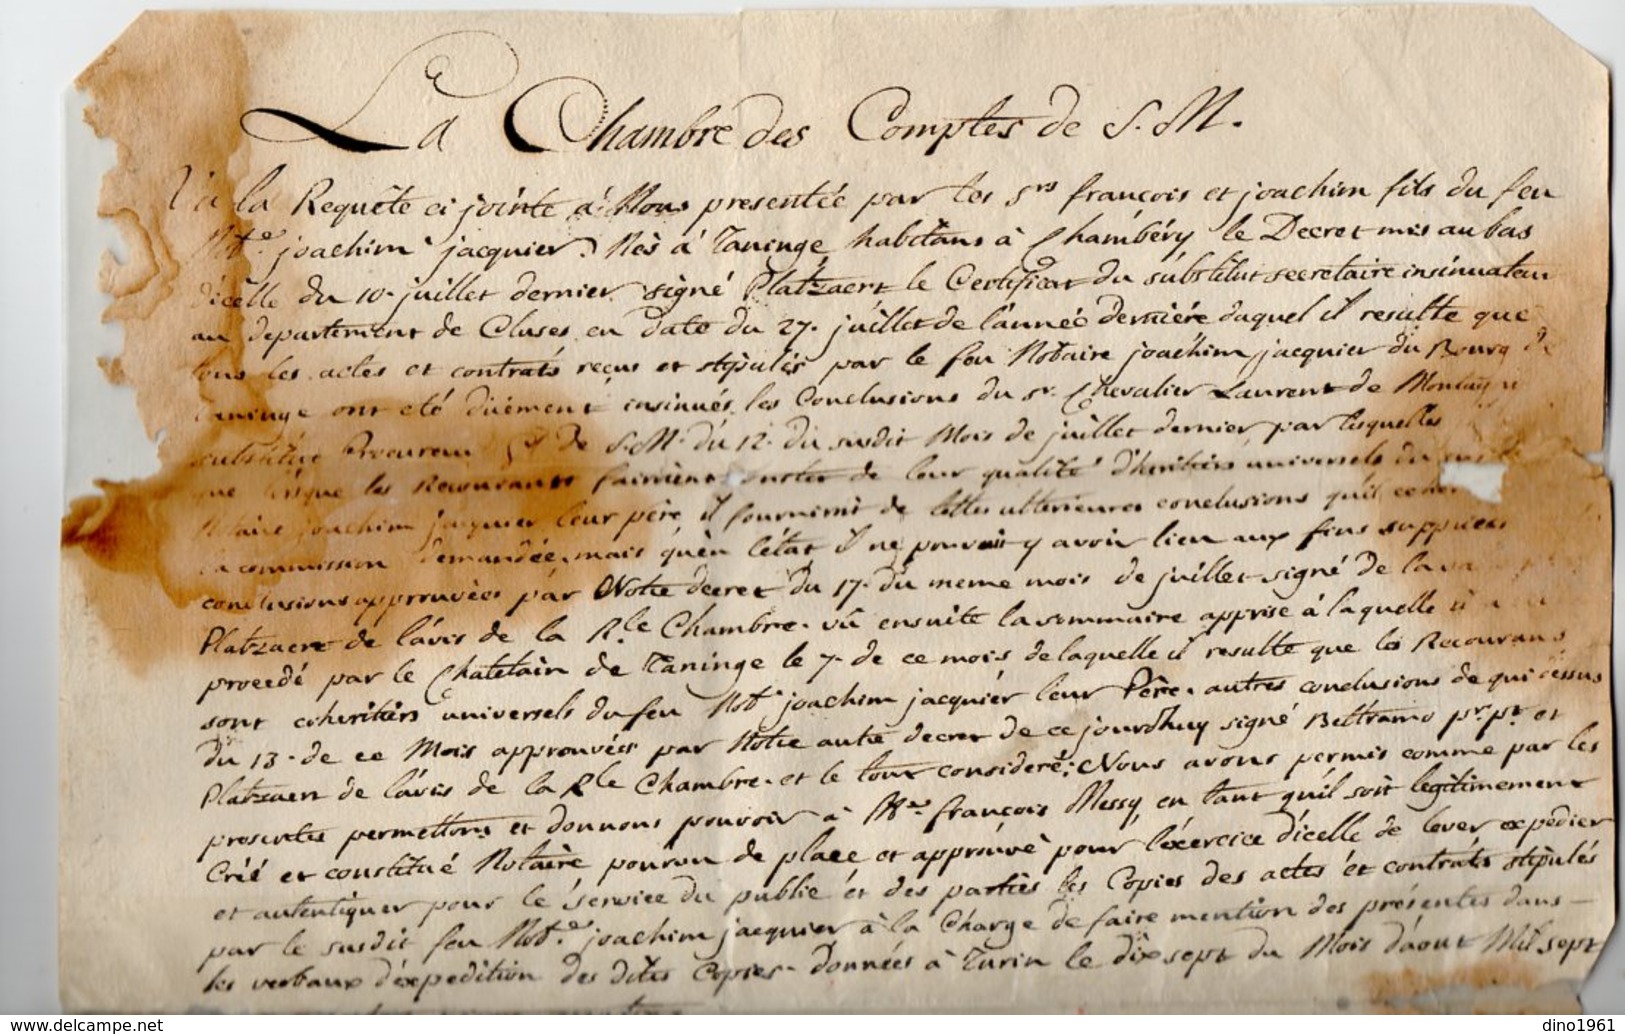 La Chambre des Comptes de S. M.
Vû la Requête ci jointe à Nous presentée par les Srs françois et joachim fils du feu
Note joachim jacquier. Nés à Taninge habitans à Chambéry le Decret mis au bas
d'icelle du 10. juillet dernier signé Platzaert le Certificat du substitut secretaire insinuateur
au departement de Cluses en date du 27. juillet de l'année derniére duquel il resulte que
tous les actes et contrats reçus et stipulés par le feu Notaire joachim jacquier du Bourg de
Taninge ont eté düement insinués, les Conclusions du Sr. Chevalier Laurent de
substitut Procureur de S. M. du 12. du susdit Mois de juillet dernier par lesquelles
que lorsque les Recourants fairoient de leur qualité d'heritiers universels du
Notaire joachim jacquier leur père, il fourniroit de telles ulterieures conclusions qu'il
la commission demandée, mais qu'en l'état il ne pouvoit y avoir lieu aux fins suppliées
conclusions approuvées par Notre decret du 17. du meme mois de juillet signé de
Platzaert de l'avis de la Rle Chambre. vû ensuite la sommaire apprise à laquelle
procedé par le Chatelain de Taninge le 7. de ce mois de laquelle il resulte que les Recourans
sont coheritiers universels du feu Not.e joachim jacquier leur Père. autres conclusions de qui dessus
du 13. de ce Mois approuvées par Notre autre decret de ce jourd'huy signé Beltramo pr. pt. et
Platzaert de l'avis de la Rle Chambre. et le tout consideré; Nous avons permis comme par les
presentes permettons et donnons pouvoir à Me. françois Messy, en tant qu'il soit legitimement
Créé et constitué Notaire pourvu de place et approuvé pour l'éxercice d'icelle de lever expédier
et autentiquer pour le service du public et des parties les Copies des actes et contrats stipulés
par le susdit feu Not.e joachim jacquier à la Charge de faire mention des présentes dans
les verbaux d'éxpedition des dites Copies. données à Turin le dix sept du Mois d'aout Mil sept
dino1961